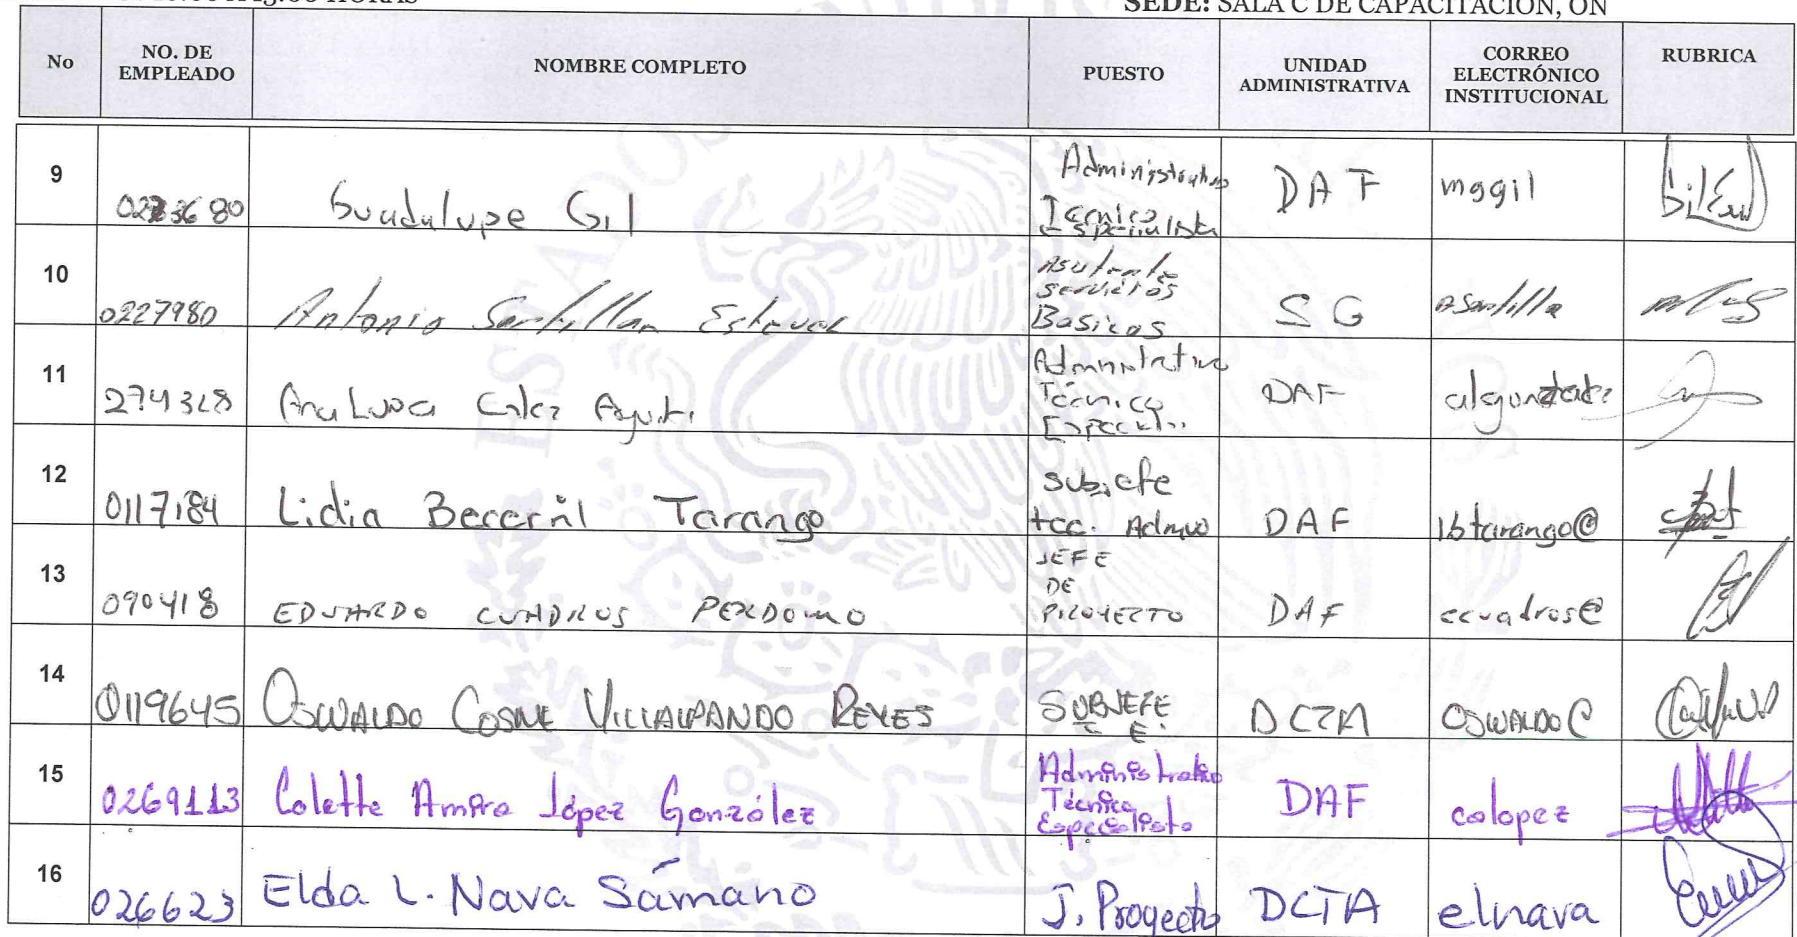 SEDE: SALA C DE CAPACITACIÓN, ON
No NO. DE EMPLEADO NOMBRE COMPLETO PUESTO UNIDAD ADMINISTRATIVA CORREO ELECTRÓNICO INSTITUCIONAL RUBRICA
9 Guadalupe Gil Administrativo Técnico Especialista DAF mggil
10 0227980 Antonio Santillan Servicios Basicos SG asantilla
11 274328 Ana Administrativo Técnico DAF
12 0117184 Lidia Becerril Tarango Subjefe tec. Admvo DAF lbtarango@
13 090418 EDUARDO CUADROS PERDOMO JEFE DE PROYECTO DAF ecuadros@
14 0119645 OSWALDO COSME VILLALPANDO REYES SUBJEFE T E. DCTA OSWALDO
15 0269113 Colette Amira López González Administrativo Técnico Especialista DAF colopez
16 026623 Elda L. Nava Sámano J. Proyecto DCTA elnava